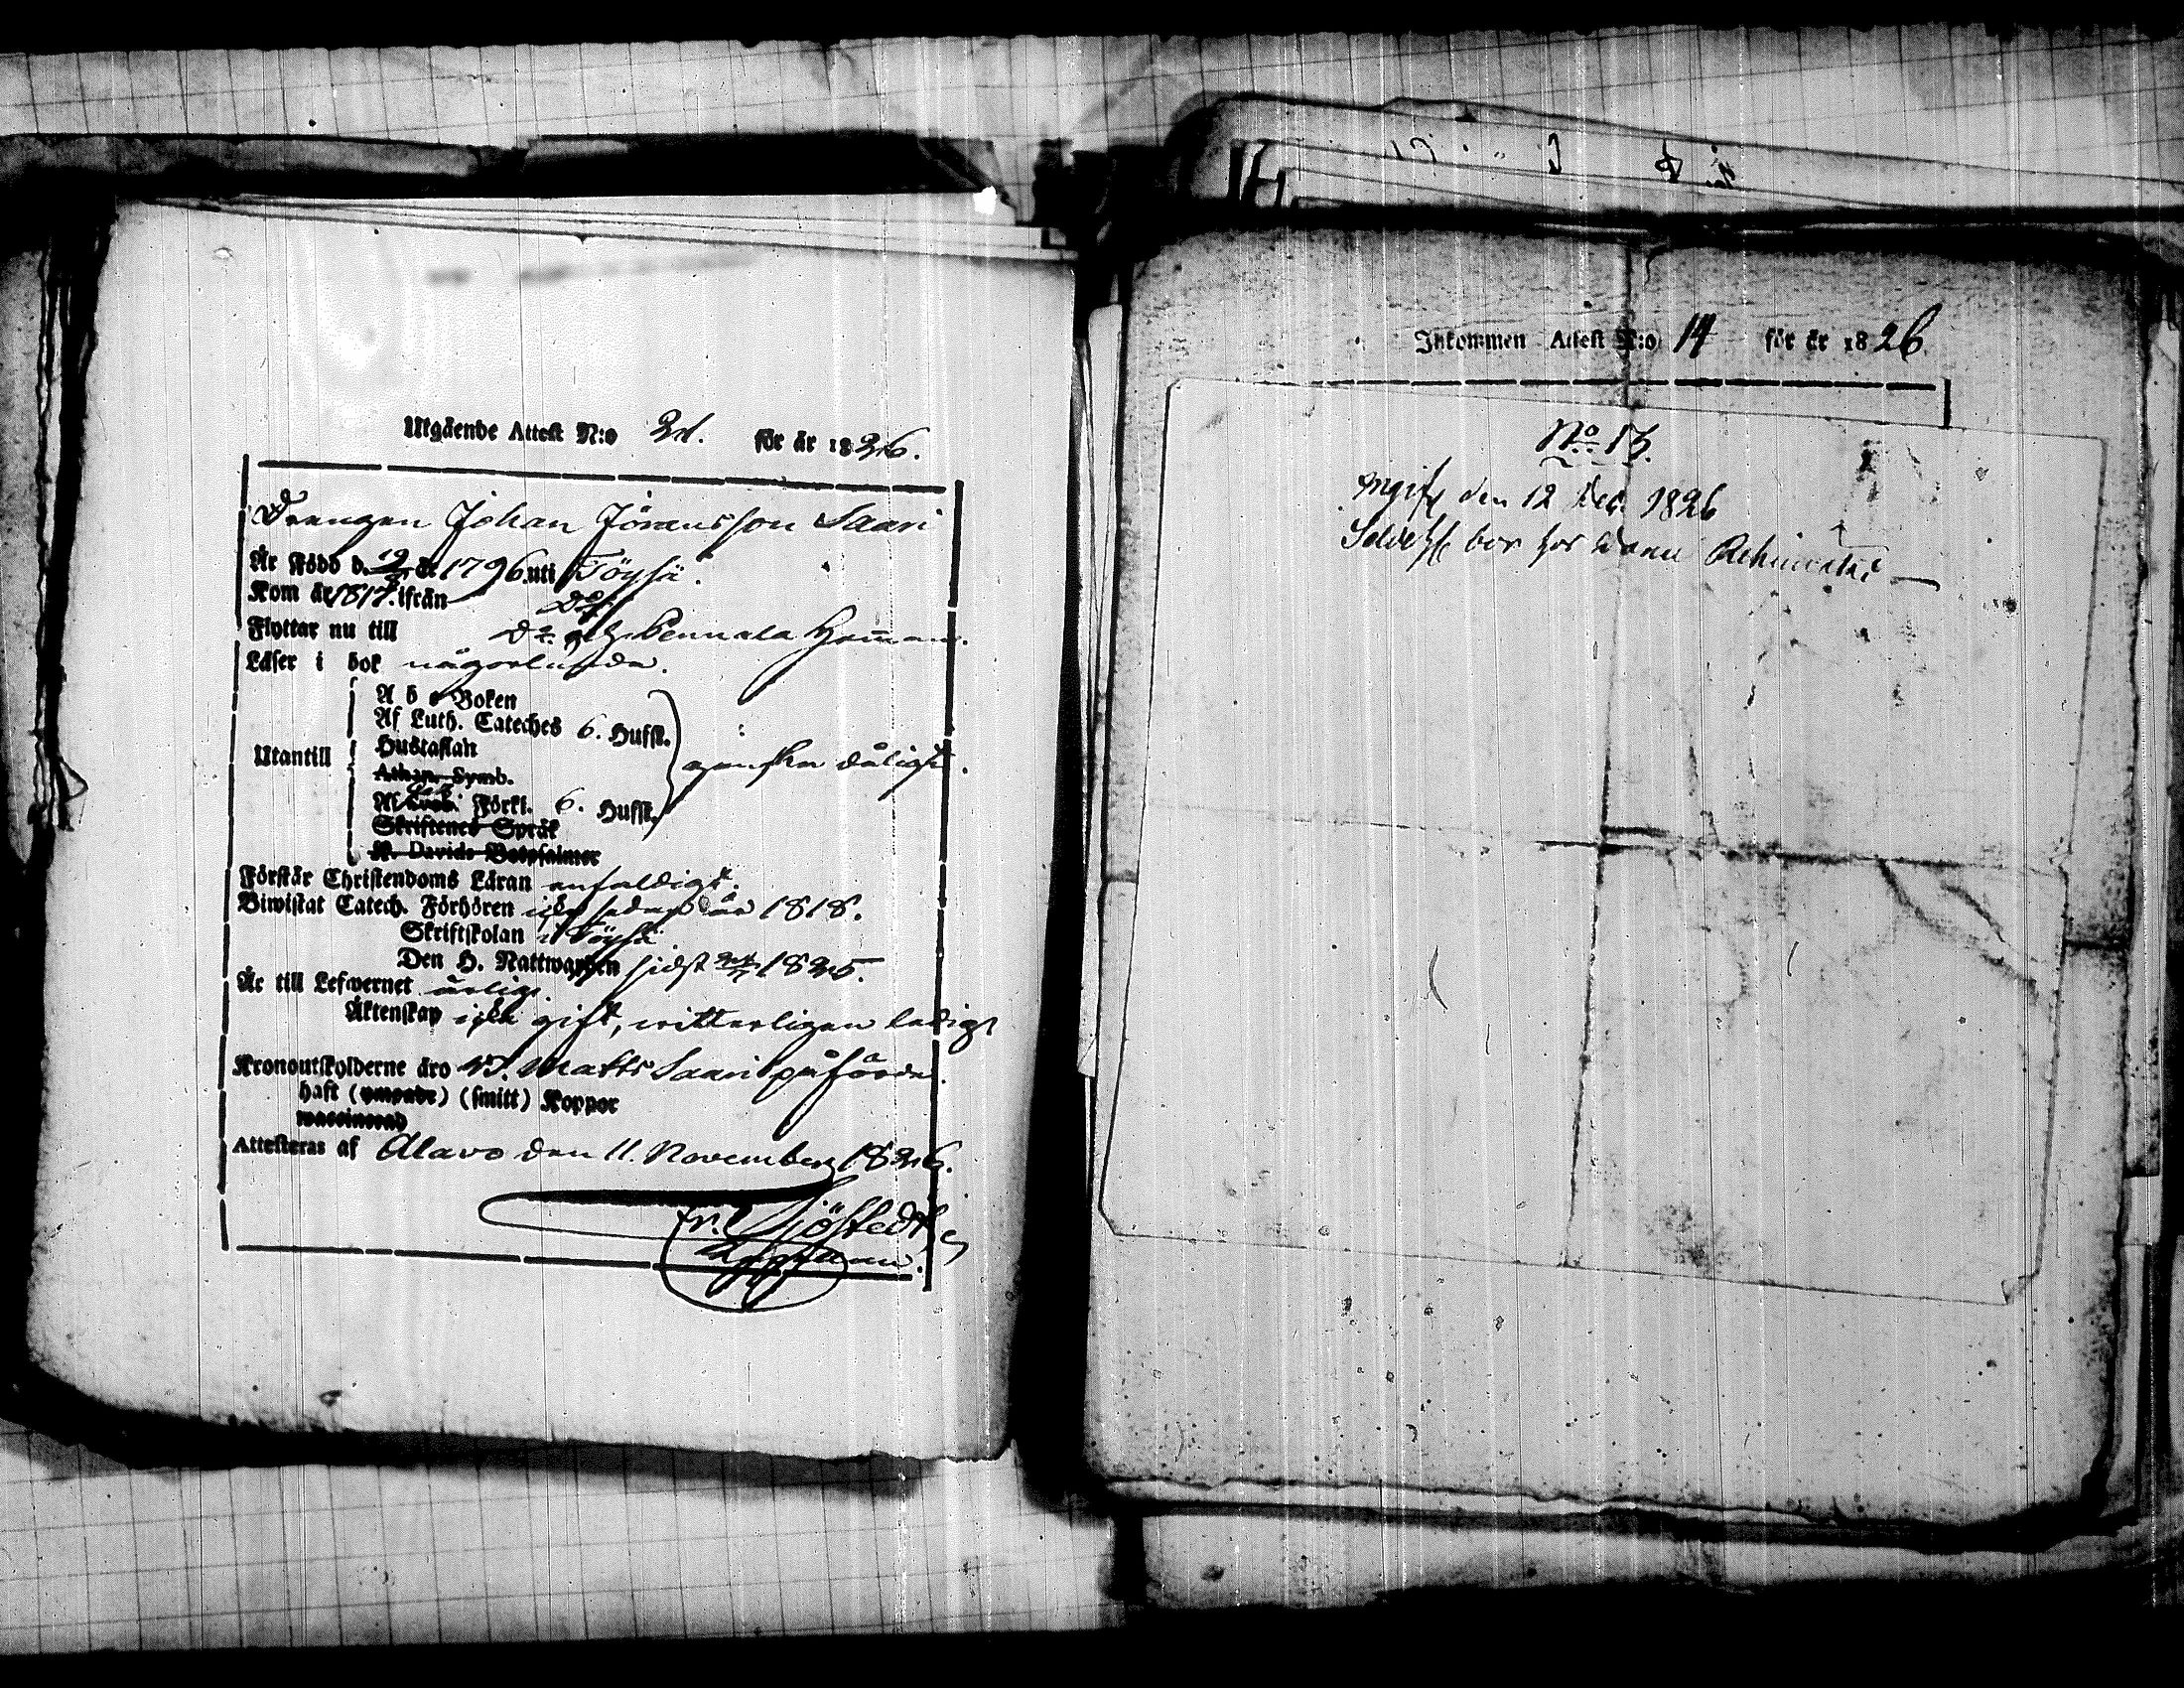 Utgående Attest N:o 21. för år 1826.
Drengen Johan Jöransson Saari
Är Född d. 19 år 1796 uti Töysä.
Kom år 1817. ifrån Do
Flyttar nu till Do och Pennala Hemman.
Läser i bok någorlunda.
A b c Boken
Af Luth. Cateches 6. Hufst.
Hustaflan
Utantill ganska dåligt.
Athan. Symb.
Af Förkl. 6. Hufst.
Skriftenes Språk
K. Davids Botpsalmer
Förstår Christendoms Läran enfaldigt.
Biwistat Catech. Förhören icke sedan år 1818.
Skriftskolan i Töysä
Den H. Nattwarden sidst 1825.
Är till Lefwernet ärlig.
Äktenskap icke gift, witterligen ledig
Kronoutskylderne äro Matts Saari påförde.
haft (ympade) (smitt) Koppor
waccinerad
Attesteras af Alavo den 11. November 1826.
Fr. Sjöstedt
Inkommen Attest N:o 14 för år 1826
No 13.
den 12 Dec. 1826
bor hos